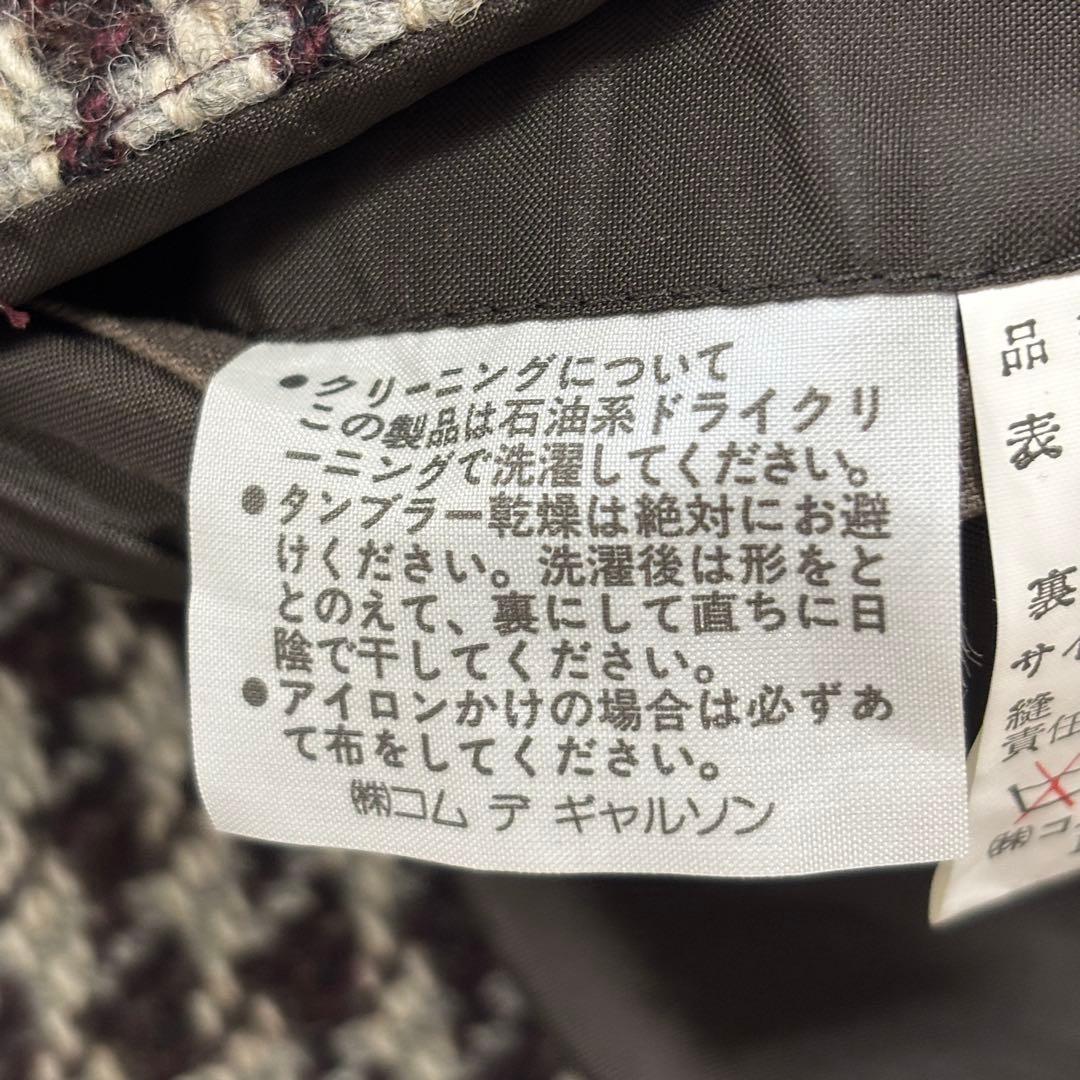 ●クリーニングについて
この製品は石油系ドライクリ
ーニングで洗濯してください。
●タンブラー乾燥は絶対にお避
けください。洗濯後は形をと
とのえて、裏にして直ちに日
陰で干してください。
●アイロンかけの場合は必ずあ
て布をしてください。
㈱コム デ ギャルソン
品
表
裏
サイ
縫
責任
㈱コ